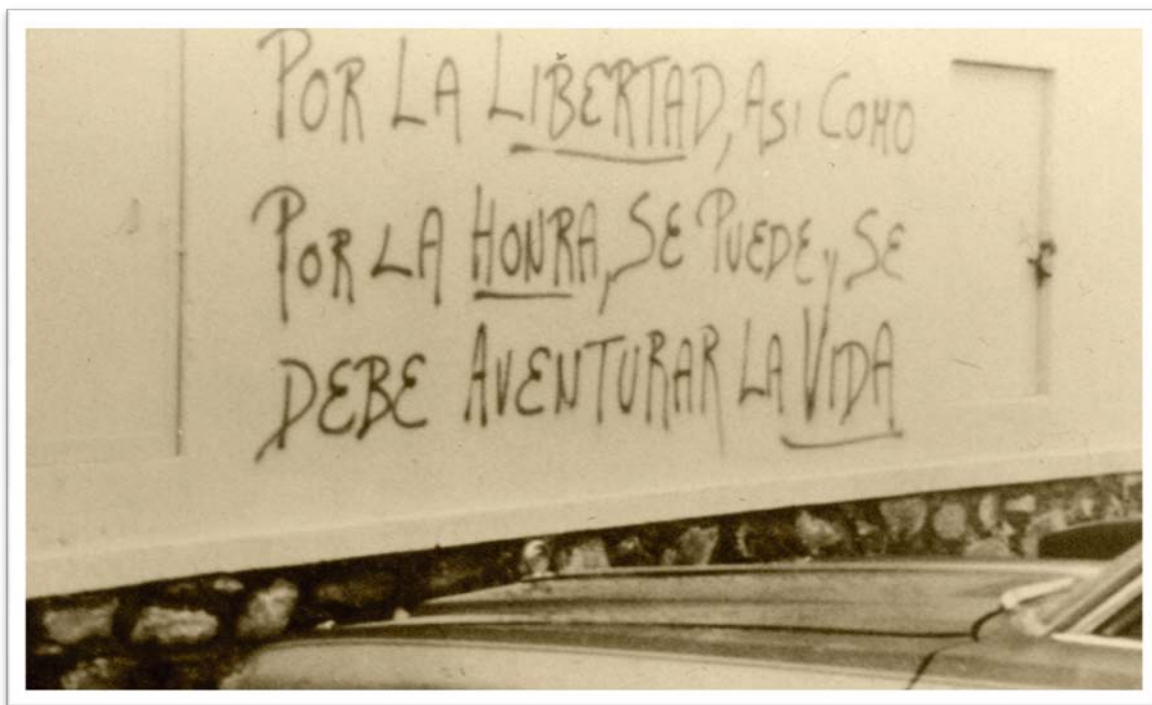 POR LA LIBERTAD, ASI COMO
POR LA HONRA, SE PUEDE Y SE
DEBE AVENTURAR LA VIDA